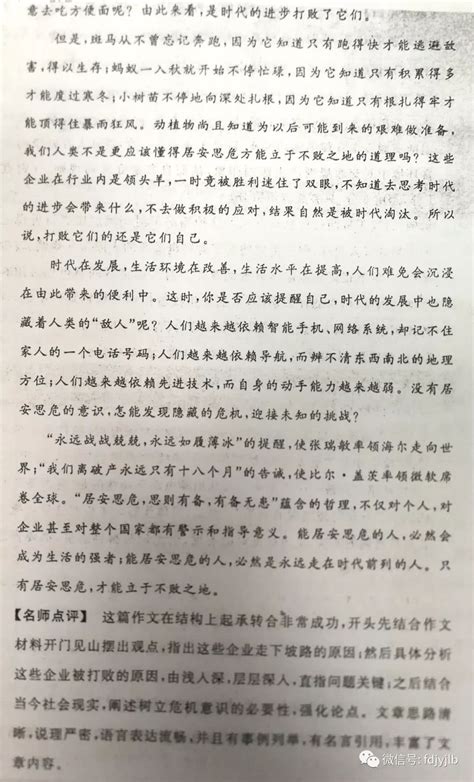 意去吃方便面呢？由此来看，是时代的进步打败了它们。
但是，斑马从不曾忘记奔跑，因为它知道只有跑得快才能逃避敌
害，得以生存；蚂蚁一入秋就开始不停忙碌，因为它知道只有积累得多
才能度过寒冬；小树苗不停地向深处扎根，因为它知道只有根扎得牢才
能顶得住暴雨狂风。动植物尚且知道为以后可能到来的艰难做准备，
我们人类不是更应该懂得居安思危方能立于不败之地的道理吗？这些
企业在行业内是领头羊，一时竟被胜利迷住了双眼，不知道去思考时代
的进步会带来什么，不去做积极的应对，结果自然是被时代淘汰。所以
说，打败它们的还是它们自己。
时代在发展，生活环境在改善，生活水平在提高，人们难免会沉浸
在由此带来的便利中。这时，你是否应该提醒自己，时代的发展中也隐
藏着人类的“敌人”呢？人们越来越依赖智能手机、网络系统，却记不住
家人的一个电话号码；人们越来越依赖导航，而辨不清东西南北的地理
方位；人们越来越依赖先进技术，而自身的动手能力越来越弱。没有居
安思危的意识，怎能发现隐藏的危机，迎接未知的挑战？
“永远战战兢兢，永远如履薄冰”的提醒，使张瑞敏率领海尔走向世
界；“我们离破产永远只有十八个月”的告诫，使比尔·盖茨率领微软席
卷全球。“居安思危，思则有备，有备无患”蕴含的哲理，不仅对个人，对
企业甚至对整个国家都有警示和指导意义。能居安思危的人，必然会
成为生活的强者；能居安思危的人，必然是永远走在时代前列的人。只
有居安思危，才能立于不败之地。
【名师点评】 这篇作文在结构上起承转合非常成功，开头先结合作文
材料开门见山摆出观点，指出这些企业走下坡路的原因；然后具体分析
这些企业被打败的原因，由浅入深，层层深入，直指问题关键；之后结合
当今社会现实，阐述树立危机意识的必要性，强化论点。文章思路清
晰，说理严密，语言表达流畅，并且有事例列举，有名言引用，丰富了文
章内容。
微信号: fdjyjlb